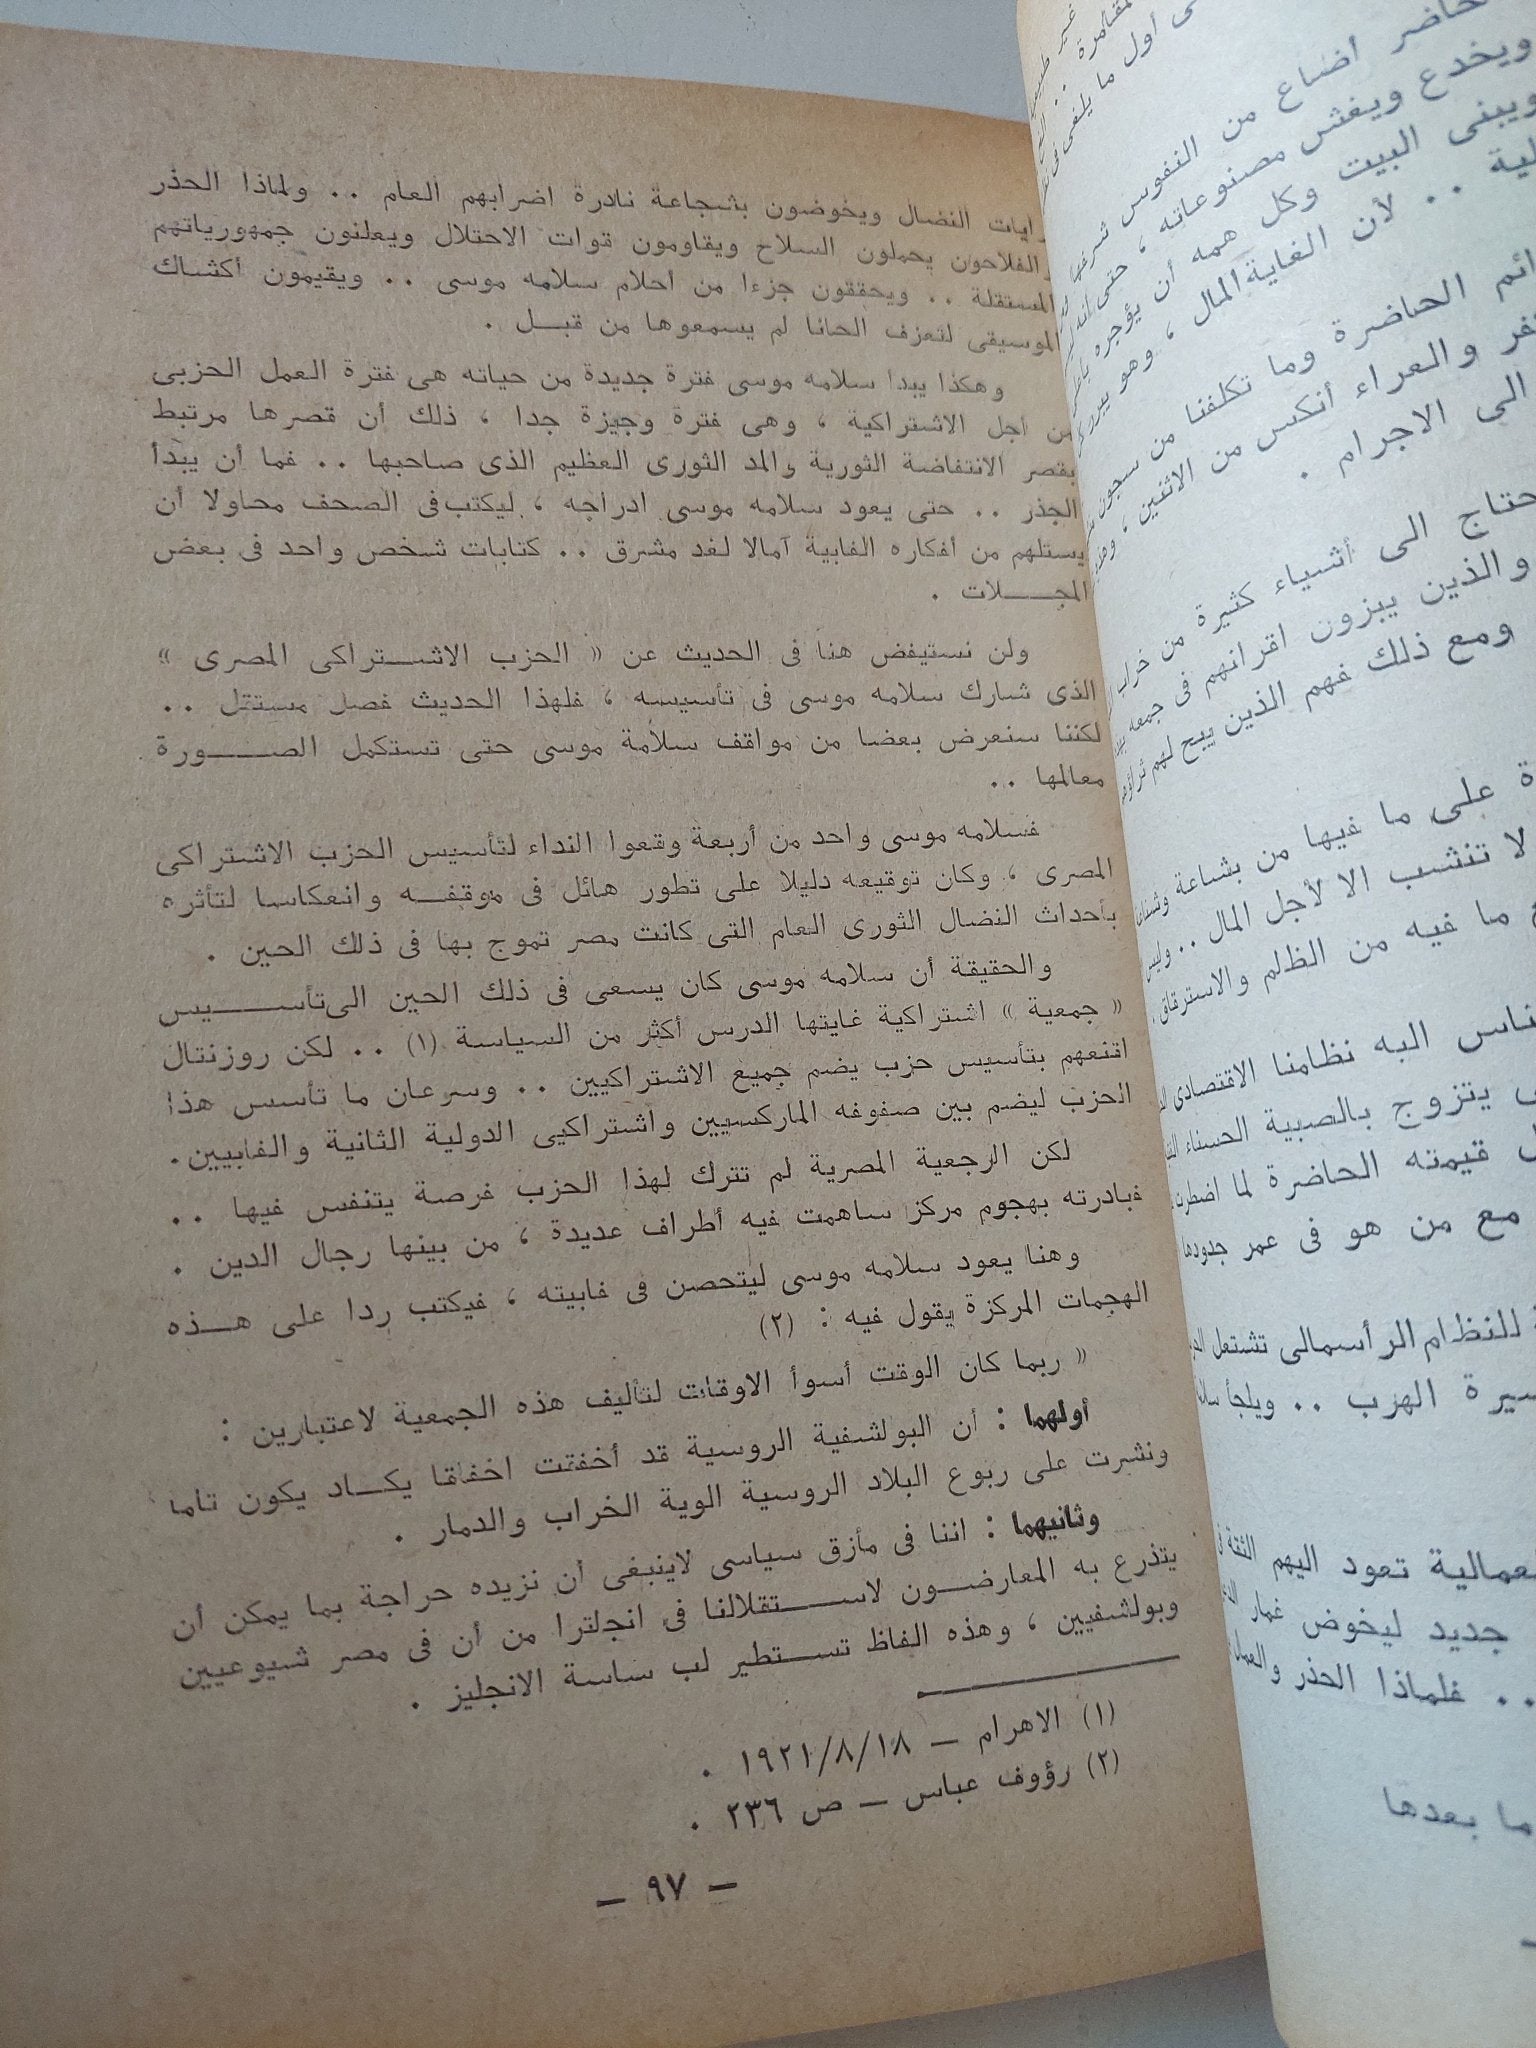 رايات النضال ويخوضون بشجاعة نادرة اضرابهم العام .. ولماذا الحذر
والفلاحون يحملون السلاح ويقاومون قوات الاحتلال ويعلنون جمهورياتهم
المستقلة .. ويحققون جزءا من احلام سلامه موسى .. ويقيمون أكشاك
الموسيقى لتعزف الحانا لم يسمعوها من قبــل .
وهكذا يبدأ سلامه موسى فترة جديدة من حياته هى فترة العمل الحزبى
من اجل الاشتراكية ، وهى فترة وجيزة جدا ، ذلك أن قصرها مرتبط
بقصر الانتفاضة الثورية والمد الثورى العظيم الذى صاحبها .. فما أن يبدأ
الجذر .. حتى يعود سلامه موسى ادراجه ، ليكتب فى الصحف محاولا أن
يستلهم من أفكاره الفابية آمالا لغد مشرق .. كتابات شخص واحد فى بعض
المجــــلات .
ولن نستيفض هنا فى الحديث عن « الحزب الاشــتراكى المصرى »
الذى شارك سلامه موسى فى تأسيسه ، فلهذا الحديث فصل مستقل ..
لكننا سنعرض بعضا من مواقف سلامة موسى حتى تستكمل الصــــورة
معالمها ..
فسلامه موسى واحد من أربعة وقعوا النداء لتأسيس الحزب الاشتراكى
المصرى ، وكان توقيعه دليلا على تطور هائل فى موقفــه وانعكاسا لتأثره
بأحداث النضال الثورى العام التى كانت مصر تموج بها فى ذلك الحين .
والحقيقة أن سلامه موسى كان يسعى فى ذلك الحين الى تأســــيس
« جمعية » اشتراكية غايتها الدرس أكثر من السياسة (١) .. لكن روزنتال
اقنعهم بتأسيس حزب يضم جميع الاشتراكيين .. وسرعان ما تأسس هذا
الحزب ليضم بين صفوفه الماركسيين واشتراكيى الدولية الثانية والفابيين .
لكن الرجعية المصرية لم تترك لهذا الحزب فرصة يتنفس فيها ..
فبادرته بهجوم مركز ساهمت فيه أطراف عديدة ، من بينها رجال الدين .
وهنا يعود سلامه موسى ليتحصن فى فابيته ، فيكتب ردا على هــذه
الهجمات المركزة يقول فيه : (٢)
« ربما كان الوقت أسوأ الاوقات لتأليف هذه الجمعية لاعتبارين :
أولهما : أن البولشفية الروسية قد أخفقت اخفاقا يكــاد يكون تاما
ونشرت على ربوع البلاد الروسية الوية الخراب والدمار .
وثانيهما : اننا فى مأزق سياسى لاينبغى أن نزيده حراجة بما يمكن أن
يتذرع به المعارضــون لاســـتقلالنا فى انجلترا من أن فى مصر شيوعيين
وبولشفيين ، وهذه الفاظ تســتطير لب ساسة الانجليز .
(١) الاهرام — ١٩٢١/٨/١٨ .
(٢) رؤوف عباس — ص ٢٣٦ .
— ٩٧ —
حاضر أضاع من النفوس شرفها
ويخدع ويغش مصنوعاته ، حتى انه
ويبنى البيت وكل همه أن يؤجره
.. لأن الغاية المال ، وهو يبرر
الحاضرة وما تكلفنا من سجون
والعراء أنكس من الاثنين ،
الى الاجرام .
الى أشياء كثيرة من خراب
والذين يبزون اقرانهم فى جمعه
ومع ذلك فهم الذين يبيح لهم ثراؤهم
على ما فيها من بشاعة
لا تنشب الا لأجل المال .. وليس
ما فيه من الظلم والاسترقاق .
اليه نظامنا الاقتصادى
يتزوج بالصبية الحسناء
قيمته الحاضرة لما اضطرت
مع من هو فى عمر جدودها
للنظام الرأسمالى تشتعل
الحزب .. ويلجأ
تعود اليهم الثقة فى
جديد ليخوض غمار
.. فلماذا الحذر والعمال
ما بعدها